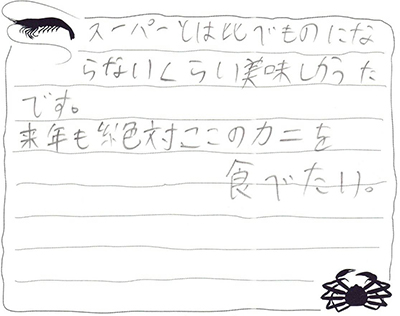 スーパーとは比べものにな
らないくらい美味しかった
です。
来年も絶対ここのカニを
食べたい。